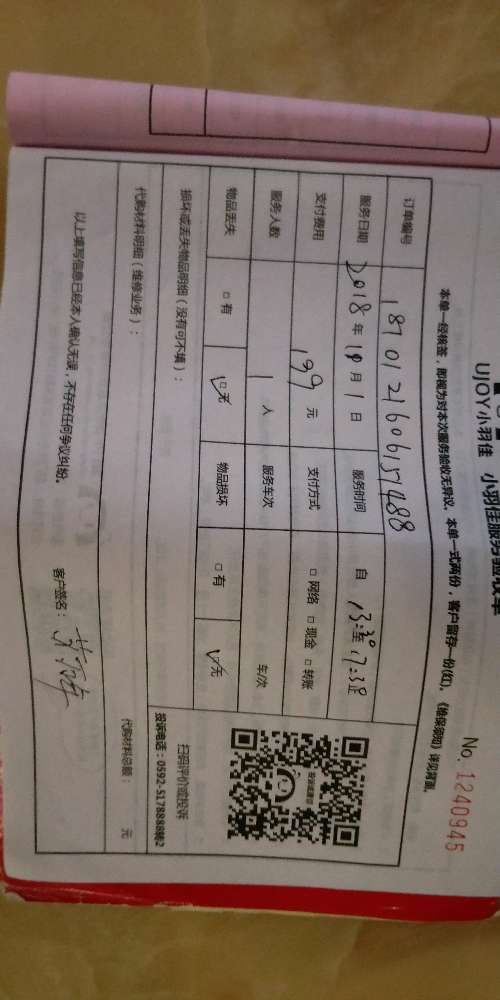 UJOY小羽佳 小羽佳服务验收单
No. 1240945
本单一经核签，即视为对本次服务验收无异议。本单一式两份，客户留存一份(红)。《维保须知》详见背面。
订单编号 1870121606157488
服务日期 2018 年 10 月 1 日 服务时间 自 13:30 至 17:30止
支付费用 199 元 支付方式 □ 网络 □ 现金 □ 转账
服务人数 1 人 服务车次 车/次
物品丢失 □ 有 ☑ 无 物品损坏 □ 有 ☑ 无
损坏或丢失物品明细（没有可不填）：
扫码评价或投诉
投诉电话：0592-5178888转2
代购材料明细（维修业务）：
代购材料总额： 元
以上填写信息已经本人确认无误，不存在任何争议纠纷。
客户签名：